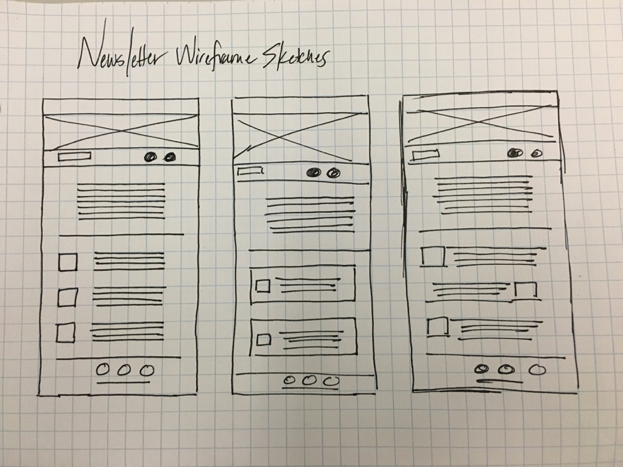 Newsletter Wireframe Sketches